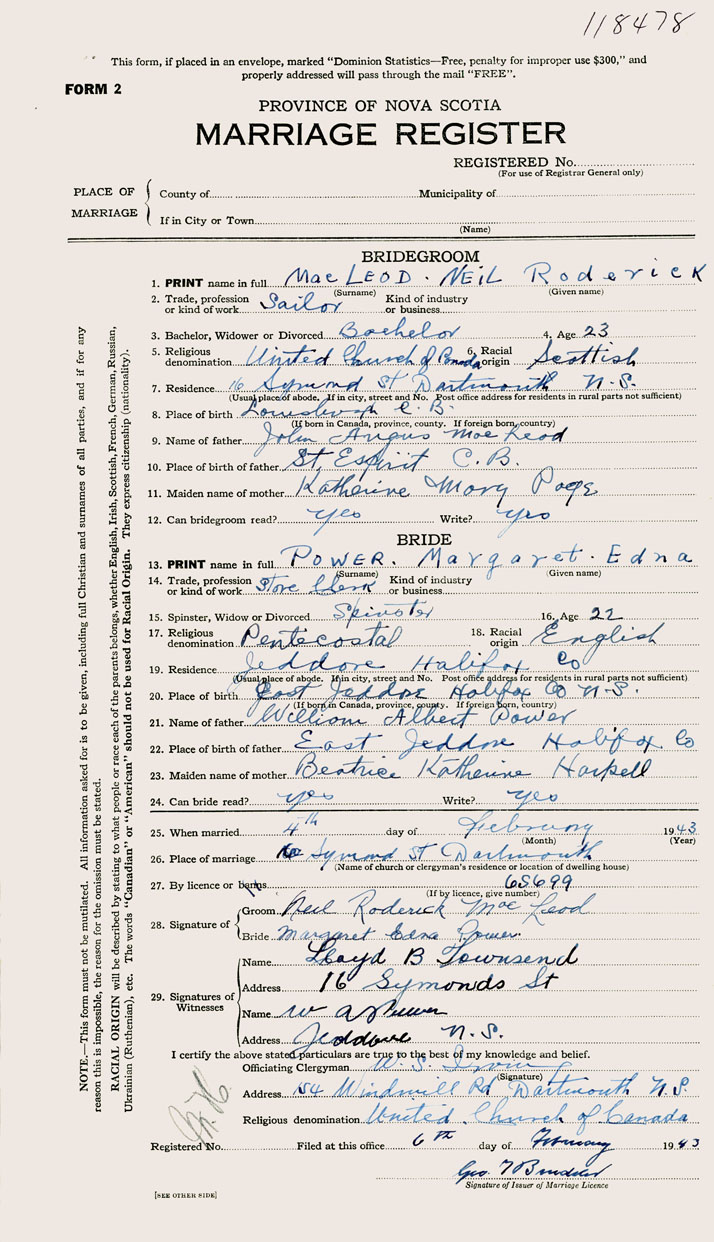 118478
This form, if placed in an envelope, marked “Dominion Statistics—Free, penalty for improper use $300,” and
properly addressed will pass through the mail “FREE”.
FORM 2
PROVINCE OF NOVA SCOTIA
MARRIAGE REGISTER
REGISTERED No.
(For use of Registrar General only)
PLACE OF MARRIAGE
County of Municipality of
If in City or Town
(Name)
BRIDEGROOM
1. PRINT name in full MacLEOD. NEIL Roderick
(Surname) (Given name)
2. Trade, profession or kind of work Sailor Kind of industry or business
3. Bachelor, Widower or Divorced Bachelor 4. Age 23
5. Religious denomination United Church of Canada 6. Racial origin Scottish
7. Residence 16 Symond St Dartmouth N.S.
(Usual place of abode. If in city, street and No. Post office address for residents in rural parts not sufficient)
8. Place of birth Louisburgh C.B.
(If born in Canada, province, county. If foreign born, country)
9. Name of father John Angus MacLeod
10. Place of birth of father St, Esprit C.B.
11. Maiden name of mother Katherine Mary Page
12. Can bridegroom read? yes Write? yes
BRIDE
13. PRINT name in full POWER. Margaret. Edna
(Surname) (Given name)
14. Trade, profession or kind of work Store Clerk Kind of industry or business
15. Spinster, Widow or Divorced Spinster 16. Age 22
17. Religious denomination Pentecostal 18. Racial origin English
19. Residence Jeddore Halifax Co
(Usual place of abode. If in city, street and No. Post office address for residents in rural parts not sufficient)
20. Place of birth East Jeddore Halifax Co N.S.
(If born in Canada, province, county. If foreign born, country)
21. Name of father William Albert Power
22. Place of birth of father East Jeddore Halifax Co
23. Maiden name of mother Beatrice Katherine Harpell
24. Can bride read? yes Write? yes
25. When married 4th day of February 1943
(Month) (Year)
26. Place of marriage 16 Symond St Dartmouth
(Name of church or clergyman's residence or location of dwelling house)
27. By licence or banns 65699
(If by licence, give number)
28. Signature of
Groom Neil Roderick MacLeod
Bride Margaret Edna Power
29. Signatures of Witnesses
Name Lloyd B Townsend
Address 16 Symonds St
Name W A Power
Address Jeddore N.S.
I certify the above stated particulars are true to the best of my knowledge and belief.
Officiating Clergyman W. S. Irwin
(Signature)
Address 154 Windmill Rd Dartmouth N.S.
Religious denomination United Church of Canada
Registered No. Filed at this office 6th day of February 1943
Geo.
Signature of Issuer of Marriage Licence
[SEE OTHER SIDE]
NOTE.—This form must not be mutilated. All information asked for is to be given, including full Christian and surnames of all parties, and if for any
reason this is impossible, the reason for the omission must be stated.
RACIAL ORIGIN will be described by stating to what people or race each of the parents belongs, whether English, Irish, Scottish, French, German, Russian,
Ukrainian (Ruthenian), etc. The words “Canadian” or “American” should not be used for Racial Origin. They express citizenship (nationality).